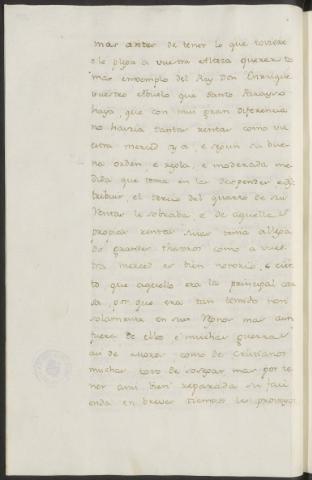 mas antes de tener lo que toviere
e le plega a vuestra Alteza querer to
mar enxemplo del Rey Don Enrrique
vuestro Abuelo que Santo Parayso
haya, que con mui gran diferencia
no havia tantas rentas como vu
estra merced y a, e segun su bue
na orden, e regla, e moderada me
dida que tenia en las despender e dis
tribuir, el tercio del quarto de sus
Rentas le sobraba e de aquellas
propias rentas suias tenia allega
do grandes thesoros como a vuest
ra merced es bien notorio, e cier
to que aquello era la principal cau
sa por que era tan temido non
solamente en sus Reynos mas aun
fuera de ellos e muchas guerras
asi de Moros como de Cristianos
muchas tovo de sosegar mas por te
ner ansi bien reparada su faci
enda en breves tiempos les proveyo